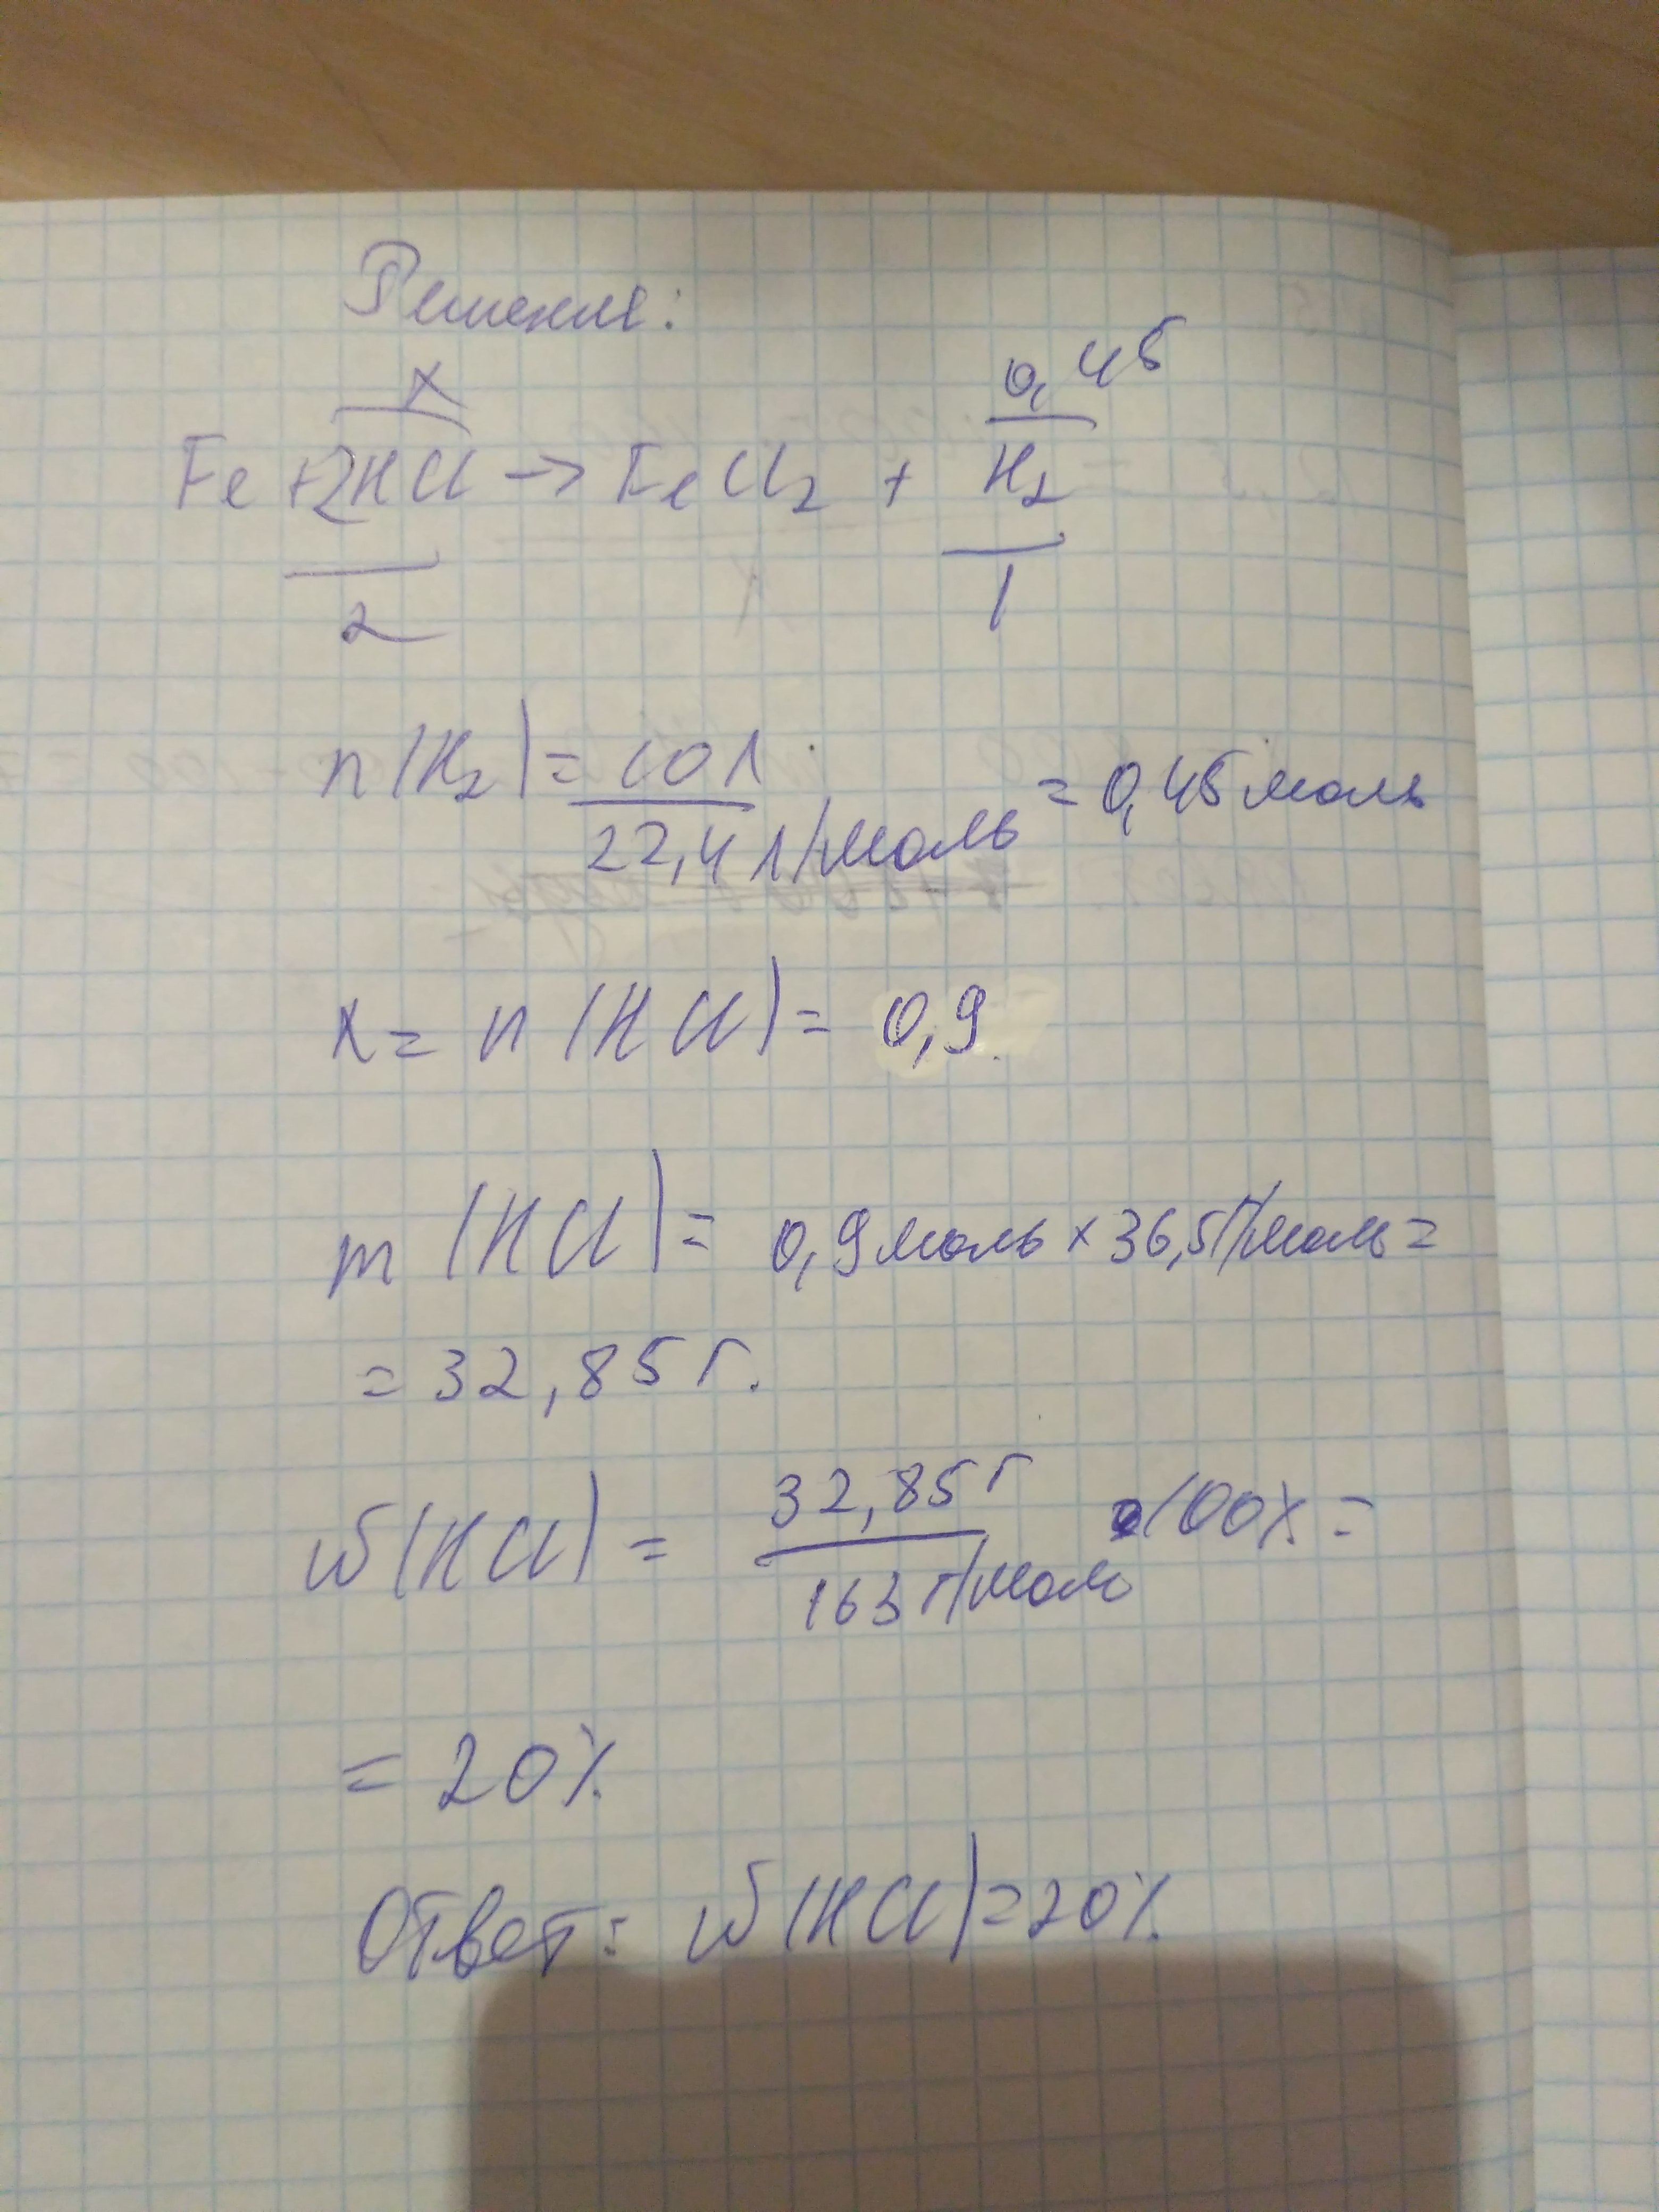 Решение:
x 0,45
Fe + 2HCl → FeCl₂ + H₂
2 1
n(H₂) = 10 л / 22,4 л/моль = 0,45 моль
x = n (HCl) = 0,9.
m (HCl) = 0,9 моль × 36,5 г/моль =
= 32,85 г.
ω(HCl) = 32,85 г / 163 г/моль · 100% =
= 20%
Ответ: ω(HCl) = 20%